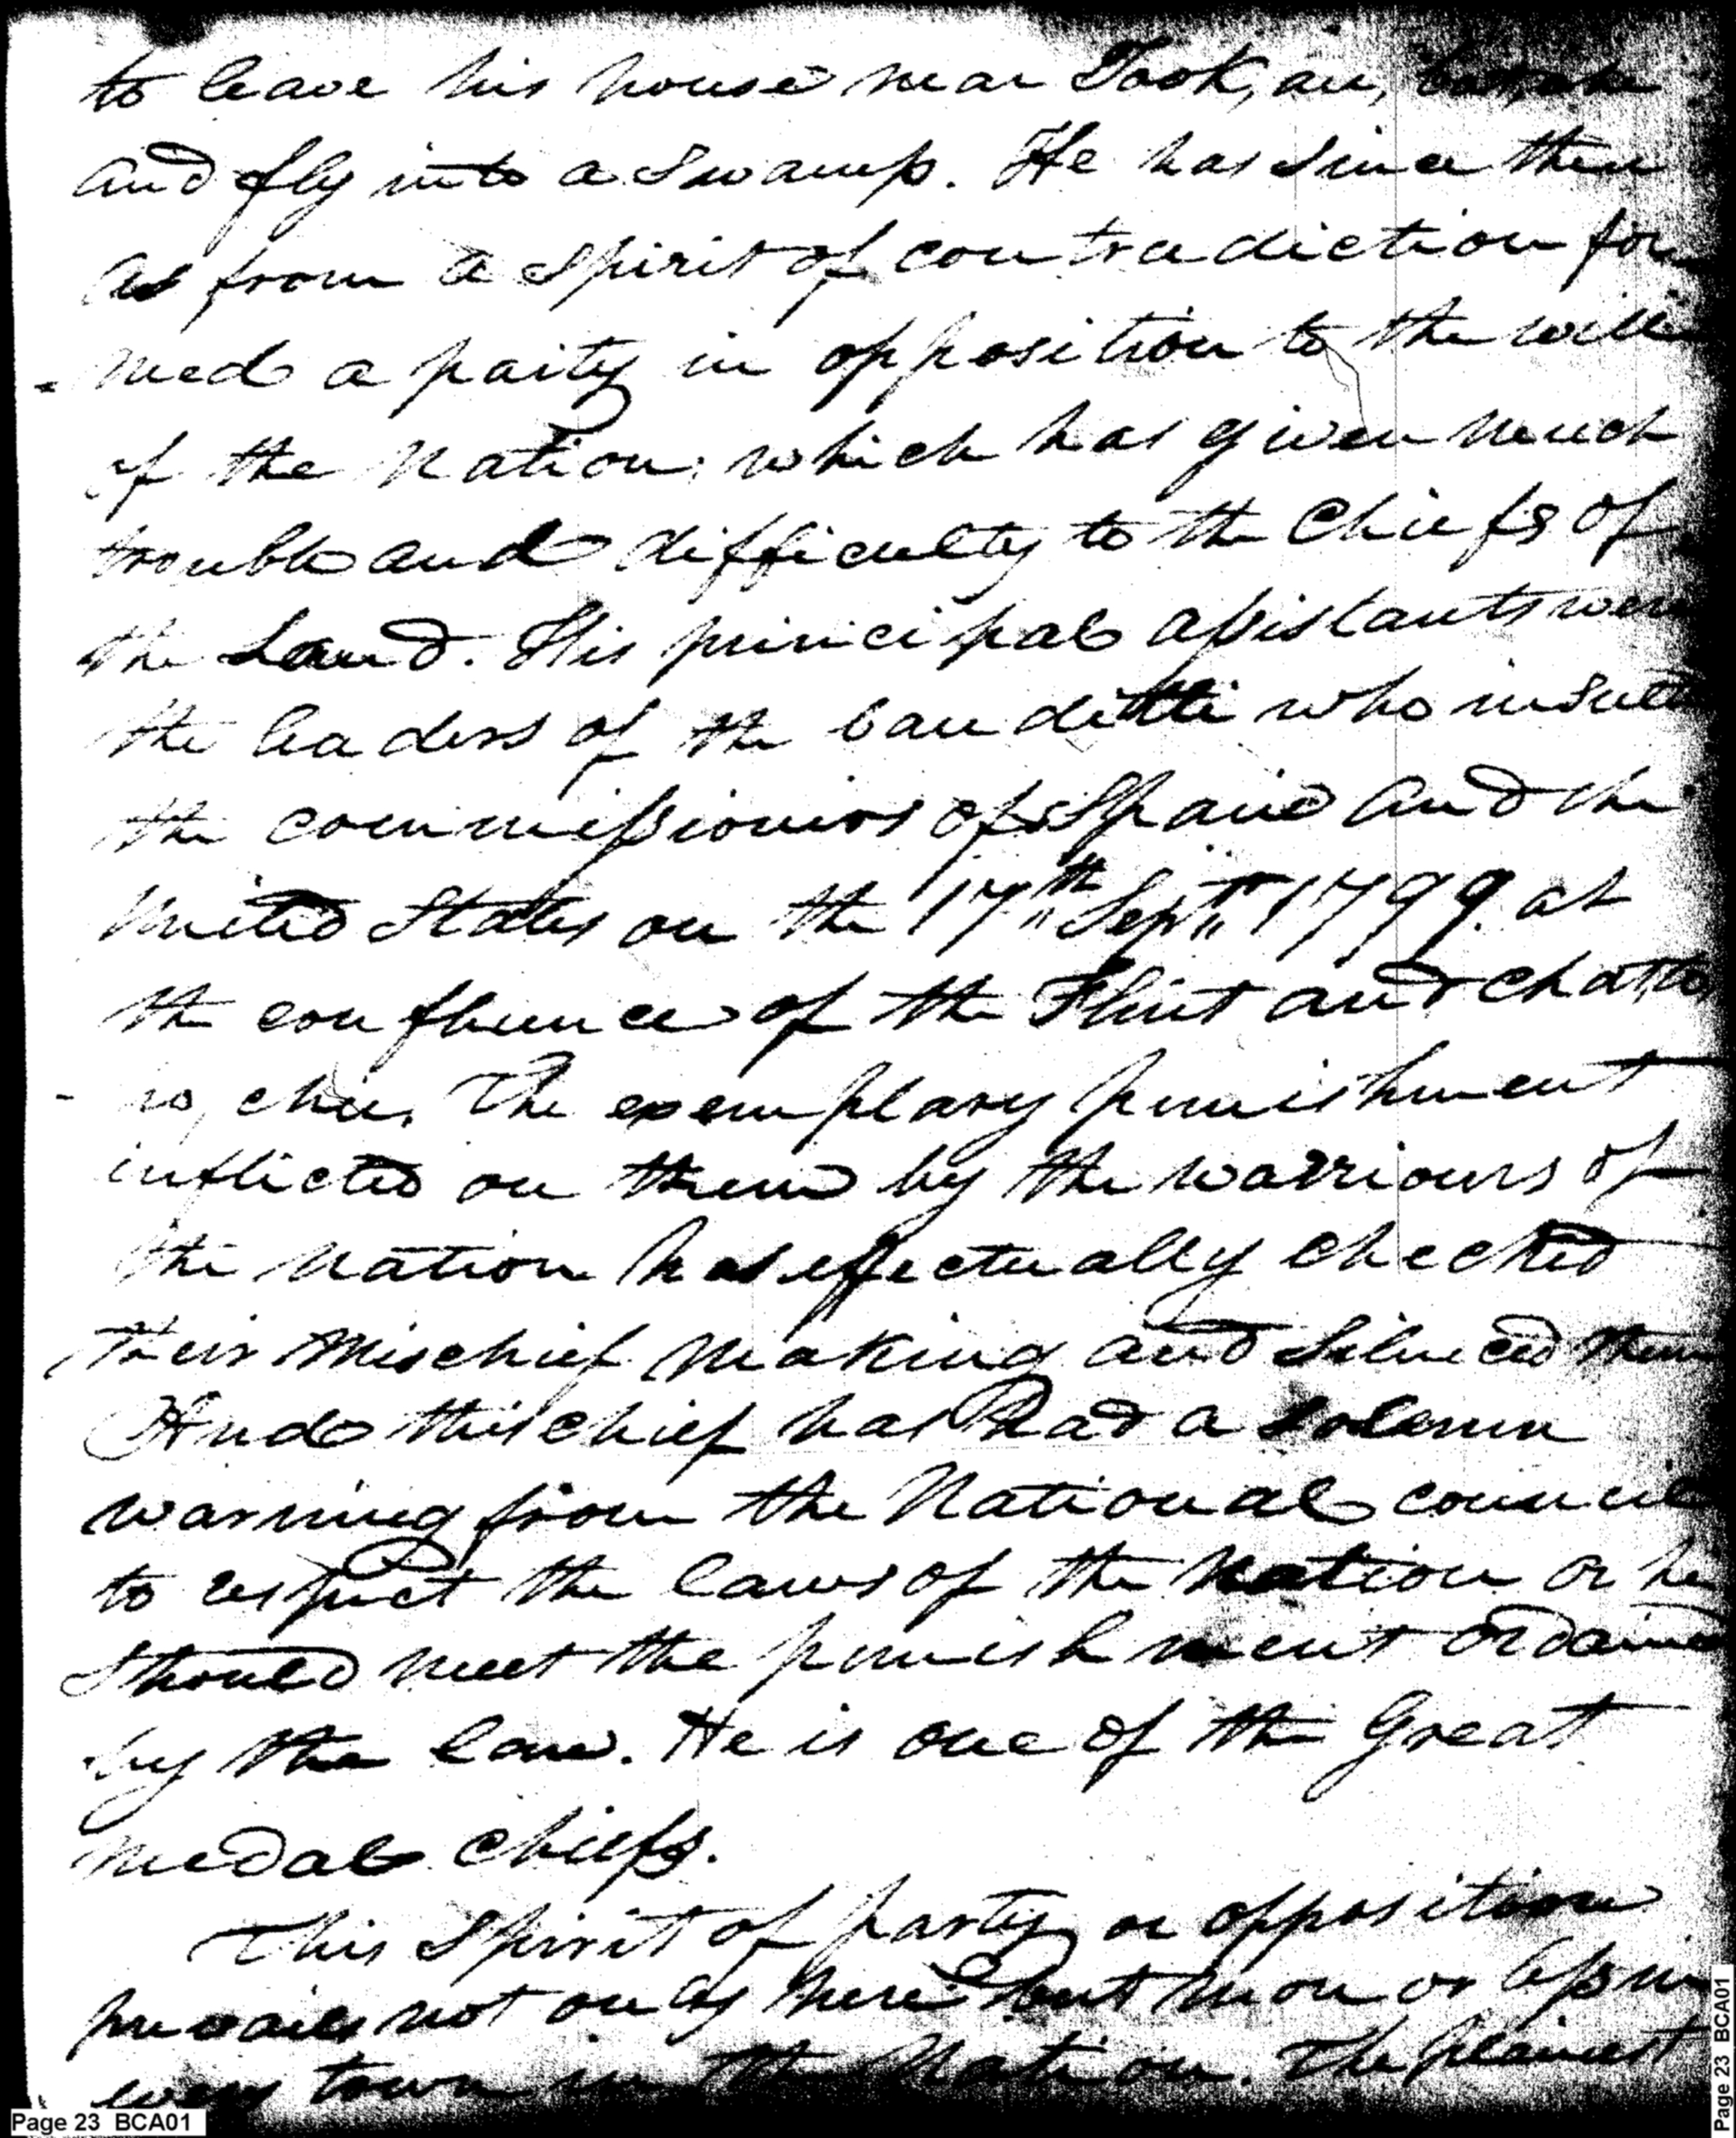 to leave his house near Took, au, bat, che
and fly into a swamp. He has since then
as from a spirit of contradiction for
= med a party in opposition to the will
of the Nation, which has given much
trouble and difficulty to the Chiefs of
the Land. His principal assistants were
the leaders of the banditti who insult
the commissioners of Spain and the
United States on the 17th Sept.r 1799. at
the confluence of the Flint and Chatto
- ho, chee. The exemplary punishment
inflicted on them by the warriours of
the Nation has effectually checked
their mischief making and silenced them
And this chief has had a solemn
warning from the National council
to respect the laws of the Nation or he
should meet the punishment ordained
by the law. He is one of the Great
medal chiefs.
This spirit of party or opposition
prevails not only here but more or less in
every town in the Nation. The plainest
Page 23 BCA01
Page 23 BCA01